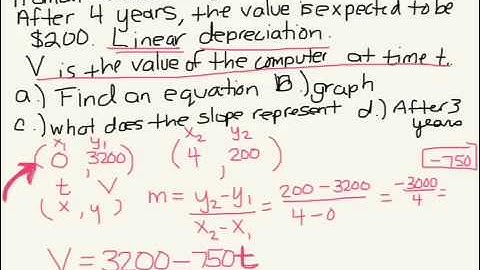 After 4 years, the value is expected to be
$200. Linear depreciation.
V is the value of the computer at time t.
a.) Find an equation B.) graph
c.) what does the slope represent d.) After 3 years
x₁ y₁ x₂ y₂
(0, 3200) (4, 200)
t V
(x, y)
m = y₂-y₁ / x₂-x₁ = 200-3200 / 4-0 = -3000 / 4 = -750
V = 3200-750t